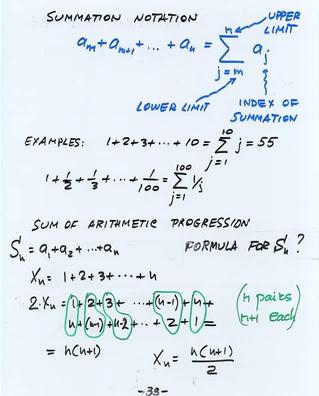 SUMMATION NOTATION
UPPER LIMIT
aₘ + aₘ₊₁ + ... + aₙ = ∑ⁿⱼ₌ₘ aⱼ
LOWER LIMIT
INDEX OF SUMMATION
EXAMPLES: 1+2+3+...+10 = ∑¹⁰ⱼ₌₁ j = 55
1 + 1/2 + 1/3 + ... + 1/100 = ∑¹⁰⁰ⱼ₌₁ 1/j
SUM OF ARITHMETIC PROGRESSION
Sₙ = a₁ + a₂ + ... + aₙ FORMULA FOR Sₙ ?
Xₙ = 1+2+3+...+n
2·Xₙ = 1+2+3+ ... +(n-1)+n+
n+(n-1)+n-2+...+2+1 =
(n pairs
n+1 each)
= n(n+1) Xₙ = n(n+1)/2
- 39 -